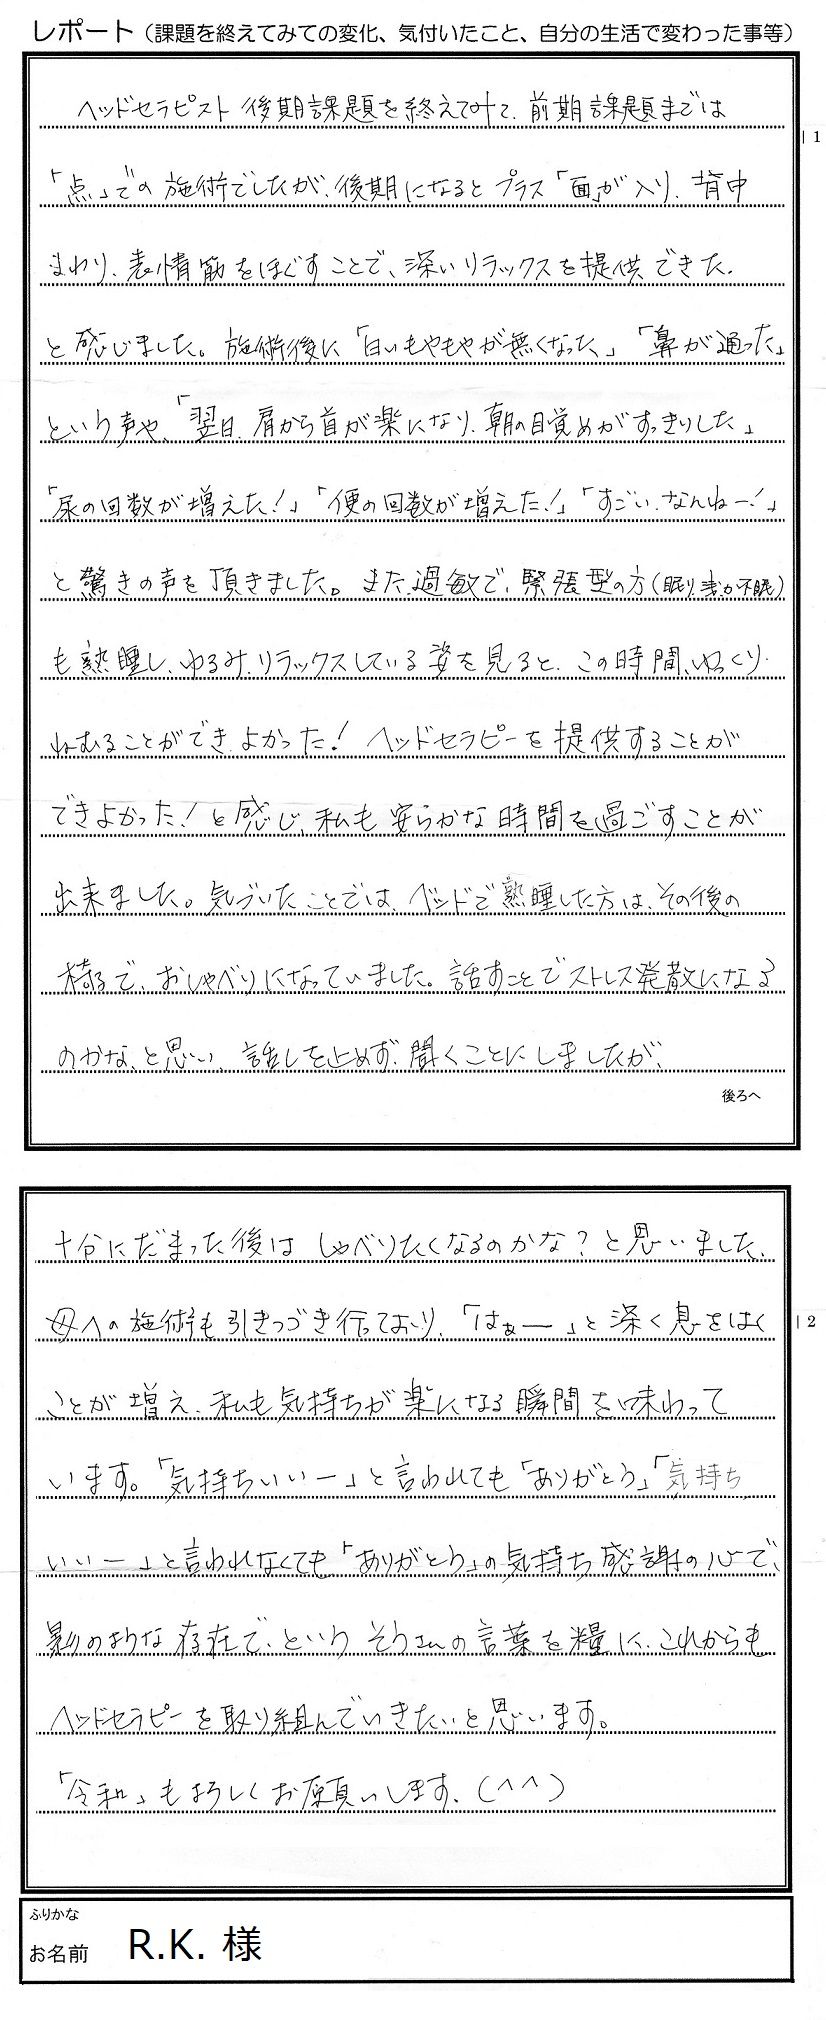 レポート（課題を終えてみての変化、気付いたこと、自分の生活で変わった事等）
ヘッドセラピスト後期課題を終えてみて、前期課題までは
1
「点」での施術でしたが、後期になるとプラス「面」が入り、背中
まわり、表情筋をほぐすことで、深いリラックスを提供できた、
と感じました。施術後に「白いもやもやが無くなった」「鼻が通った」
という声や、「翌日、肩から首が楽になり、朝の目覚めがすっきりした」
「尿の回数が増えた！」「便の回数が増えた！」「すごい、なんねー！」
と驚きの声を頂きました。また、過敏で、緊張型の方（眠り浅か不眠）
も熟睡し、ゆるみ、リラックスしている姿を見ると、この時間、ゆっくり
ねむることができ、よかった！ヘッドセラピーを提供することが
できよかった！と感じ、私も安らかな時間を過ごすことが
出来ました。気づいたことでは、ベッドで熟睡した方は、その後の
椅子で、おしゃべりになっていました。話すことでストレス発散になる
のかな、と思い、話しを止めず、聞くことにしましたが、
後ろへ
十分にだまった後はしゃべりたくなるのかな？と思いました。
母への施術も引きつづき行っており、「はぁー」と深く息をはく
2
ことが増え、私も気持ちが楽になる瞬間を味わって
います。「気持ちいいー」と言われても「ありがとう」「気持ち
いいー」と言われなくても「ありがとう」の気持ち感謝の心で、
影のような存在で、という そうさんの言葉を糧に、これからも
ヘッドセラピーを取り組んでいきたいと思います。
「令和」もよろしくお願いします。（＾＾）
ふりかな
お名前 R.K. 様